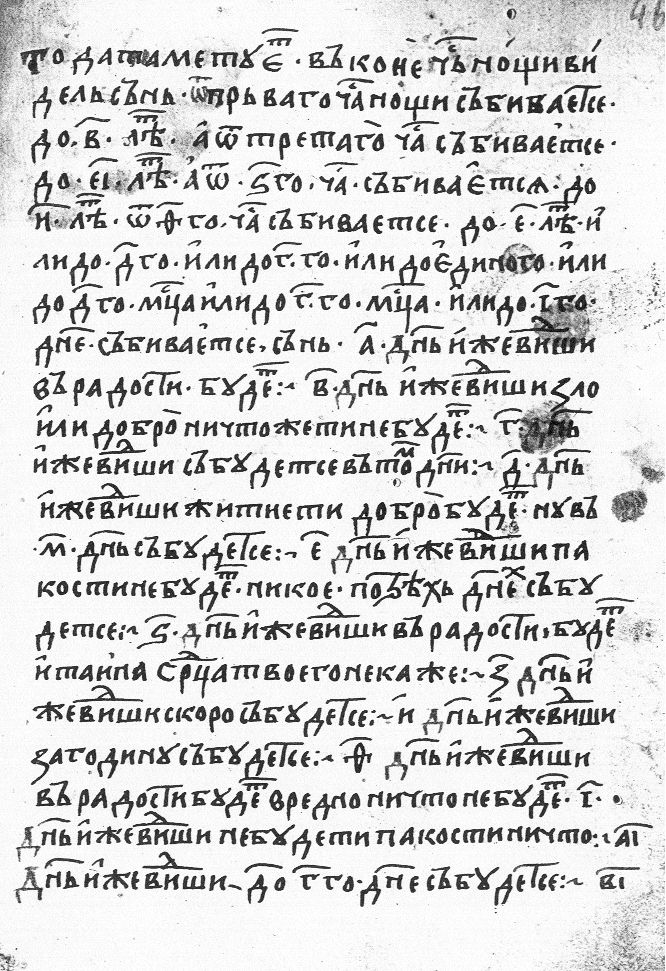 то да паметуѥⷮ · въ конѐчъⷩ҇ ноши ви
дель сънь · ѿ прьваго чⷭ҇а ноши събиваѥтсе ·
до · в҃ · лѣⷮ · а҆ ѿ третаго чⷭ҇а събиваетсе ·
до · еі҃ · лѣⷮ · а҆ ѿ · ѕ҃го · чⷭ҇а · събиваєтсꙗ · до
и҃ · лѣⷮ · ѿ ѳ҃го · чⷭ҇а събиваетсе · до · е҃ · лѣⷮ · и҆
ли до · д҃го · и҆ли до г҃ · го · и҆ли до є҆диного · и҆ли
до д҃го · мⷭ҇ца и҆ли до г҃ · го · мⷭ҇ца · и҆ли до · г҃го ·
дн҃е · събиваетсе, сънь · а҃ · дн҃ь и҆же виⷤши
въ радости · будеⷮ :~ в҃ · дн҃ь и҆же виⷤши зло
и҆ли добро ничтоже ти не будеⷮ :~ г҃ · дн҃ь
и҆же виⷤши събудетсе въ тоⷨ дн҃и :~ д҃ · дн҃ь
и҆же виⷤши житие ти добро будеⷮ · ну въ
· м҃ · дн҃ь събудетсе :~ е҃ дн҃ь и҆же виⷤши па
кости не будеⷮ · никое · по ѕ҃ѣхь дн҃еⷯ събу
детсе :~ ѕ҃ · дн҃ь и҆же виⷤши въ радости, будеⷮ
и҆ таинꙗ срⷣца твоего не каже :~ з҃ дн҃ь и҆
же виⷤши скоро събудетсе :~ и҃ дн҃ь и҆же виⷤши
за годину събудетсе :~ ѳ҃ дн҃ь и҆же виⷤши
въ радости будеⷮ вредно ничто не будеⷮ · і҃ ·
дн҃ь и҆же виⷤши не буде ти пакости ничто :~ аі҃
дн҃ь и҆же виⷤши – до г҃го · дн҃е събудетсе :~ ві҃